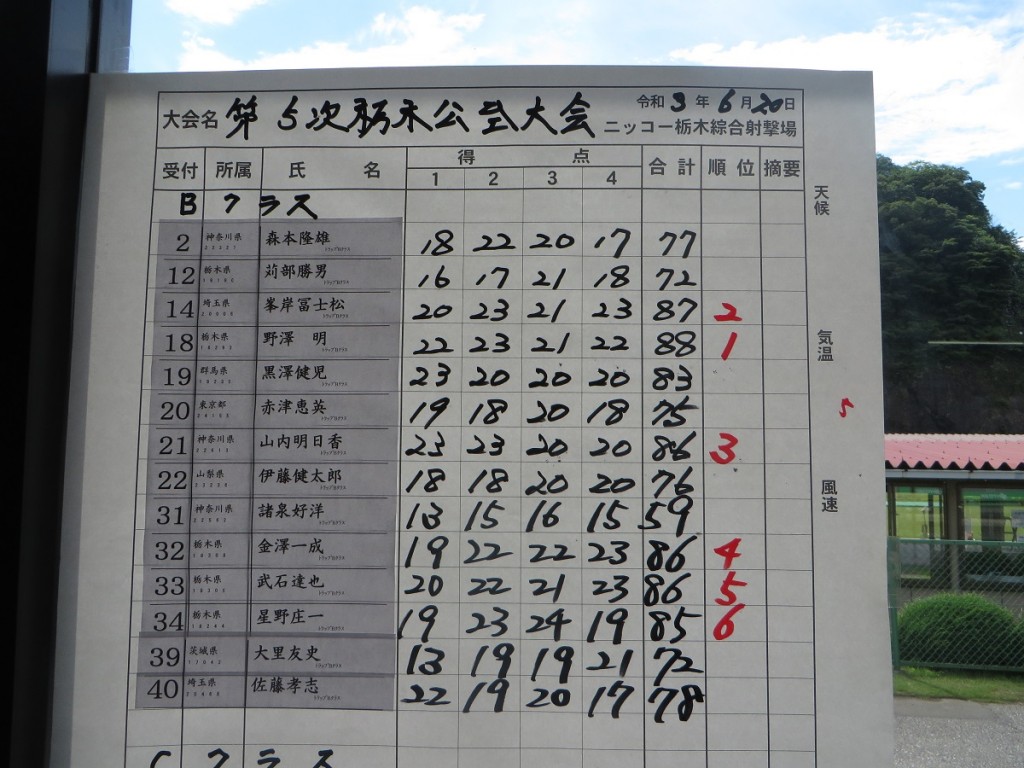 大会名 第5次栃木公式大会 令和3年6月20日
ニッコー栃木綜合射撃場
受付 所属 氏名 得点 合計 順位 摘要
1 2 3 4
天候
Bクラス
2 神奈川県 森本隆雄 18 22 20 17 77
12 栃木県 苅部勝男 16 17 21 18 72
14 埼玉県 峯岸冨士松 20 23 21 23 87 2
18 栃木県 野澤 明 22 23 21 22 88 1
気温
19 群馬県 黒澤健児 23 20 20 20 83
20 東京都 赤津恵英 19 18 20 18 75
5
21 神奈川県 山内明日香 23 23 20 20 86 3
22 山梨県 伊藤健太郎 18 18 20 20 76
風速
31 神奈川県 諸泉好洋 13 15 16 15 59
32 栃木県 金澤一成 19 22 22 23 86 4
33 栃木県 武石達也 20 22 21 23 86 5
34 栃木県 星野庄一 19 23 24 19 85 6
39 茨城県 大里友史 13 19 19 21 72
40 埼玉県 佐藤孝志 22 19 20 17 78
Cクラス